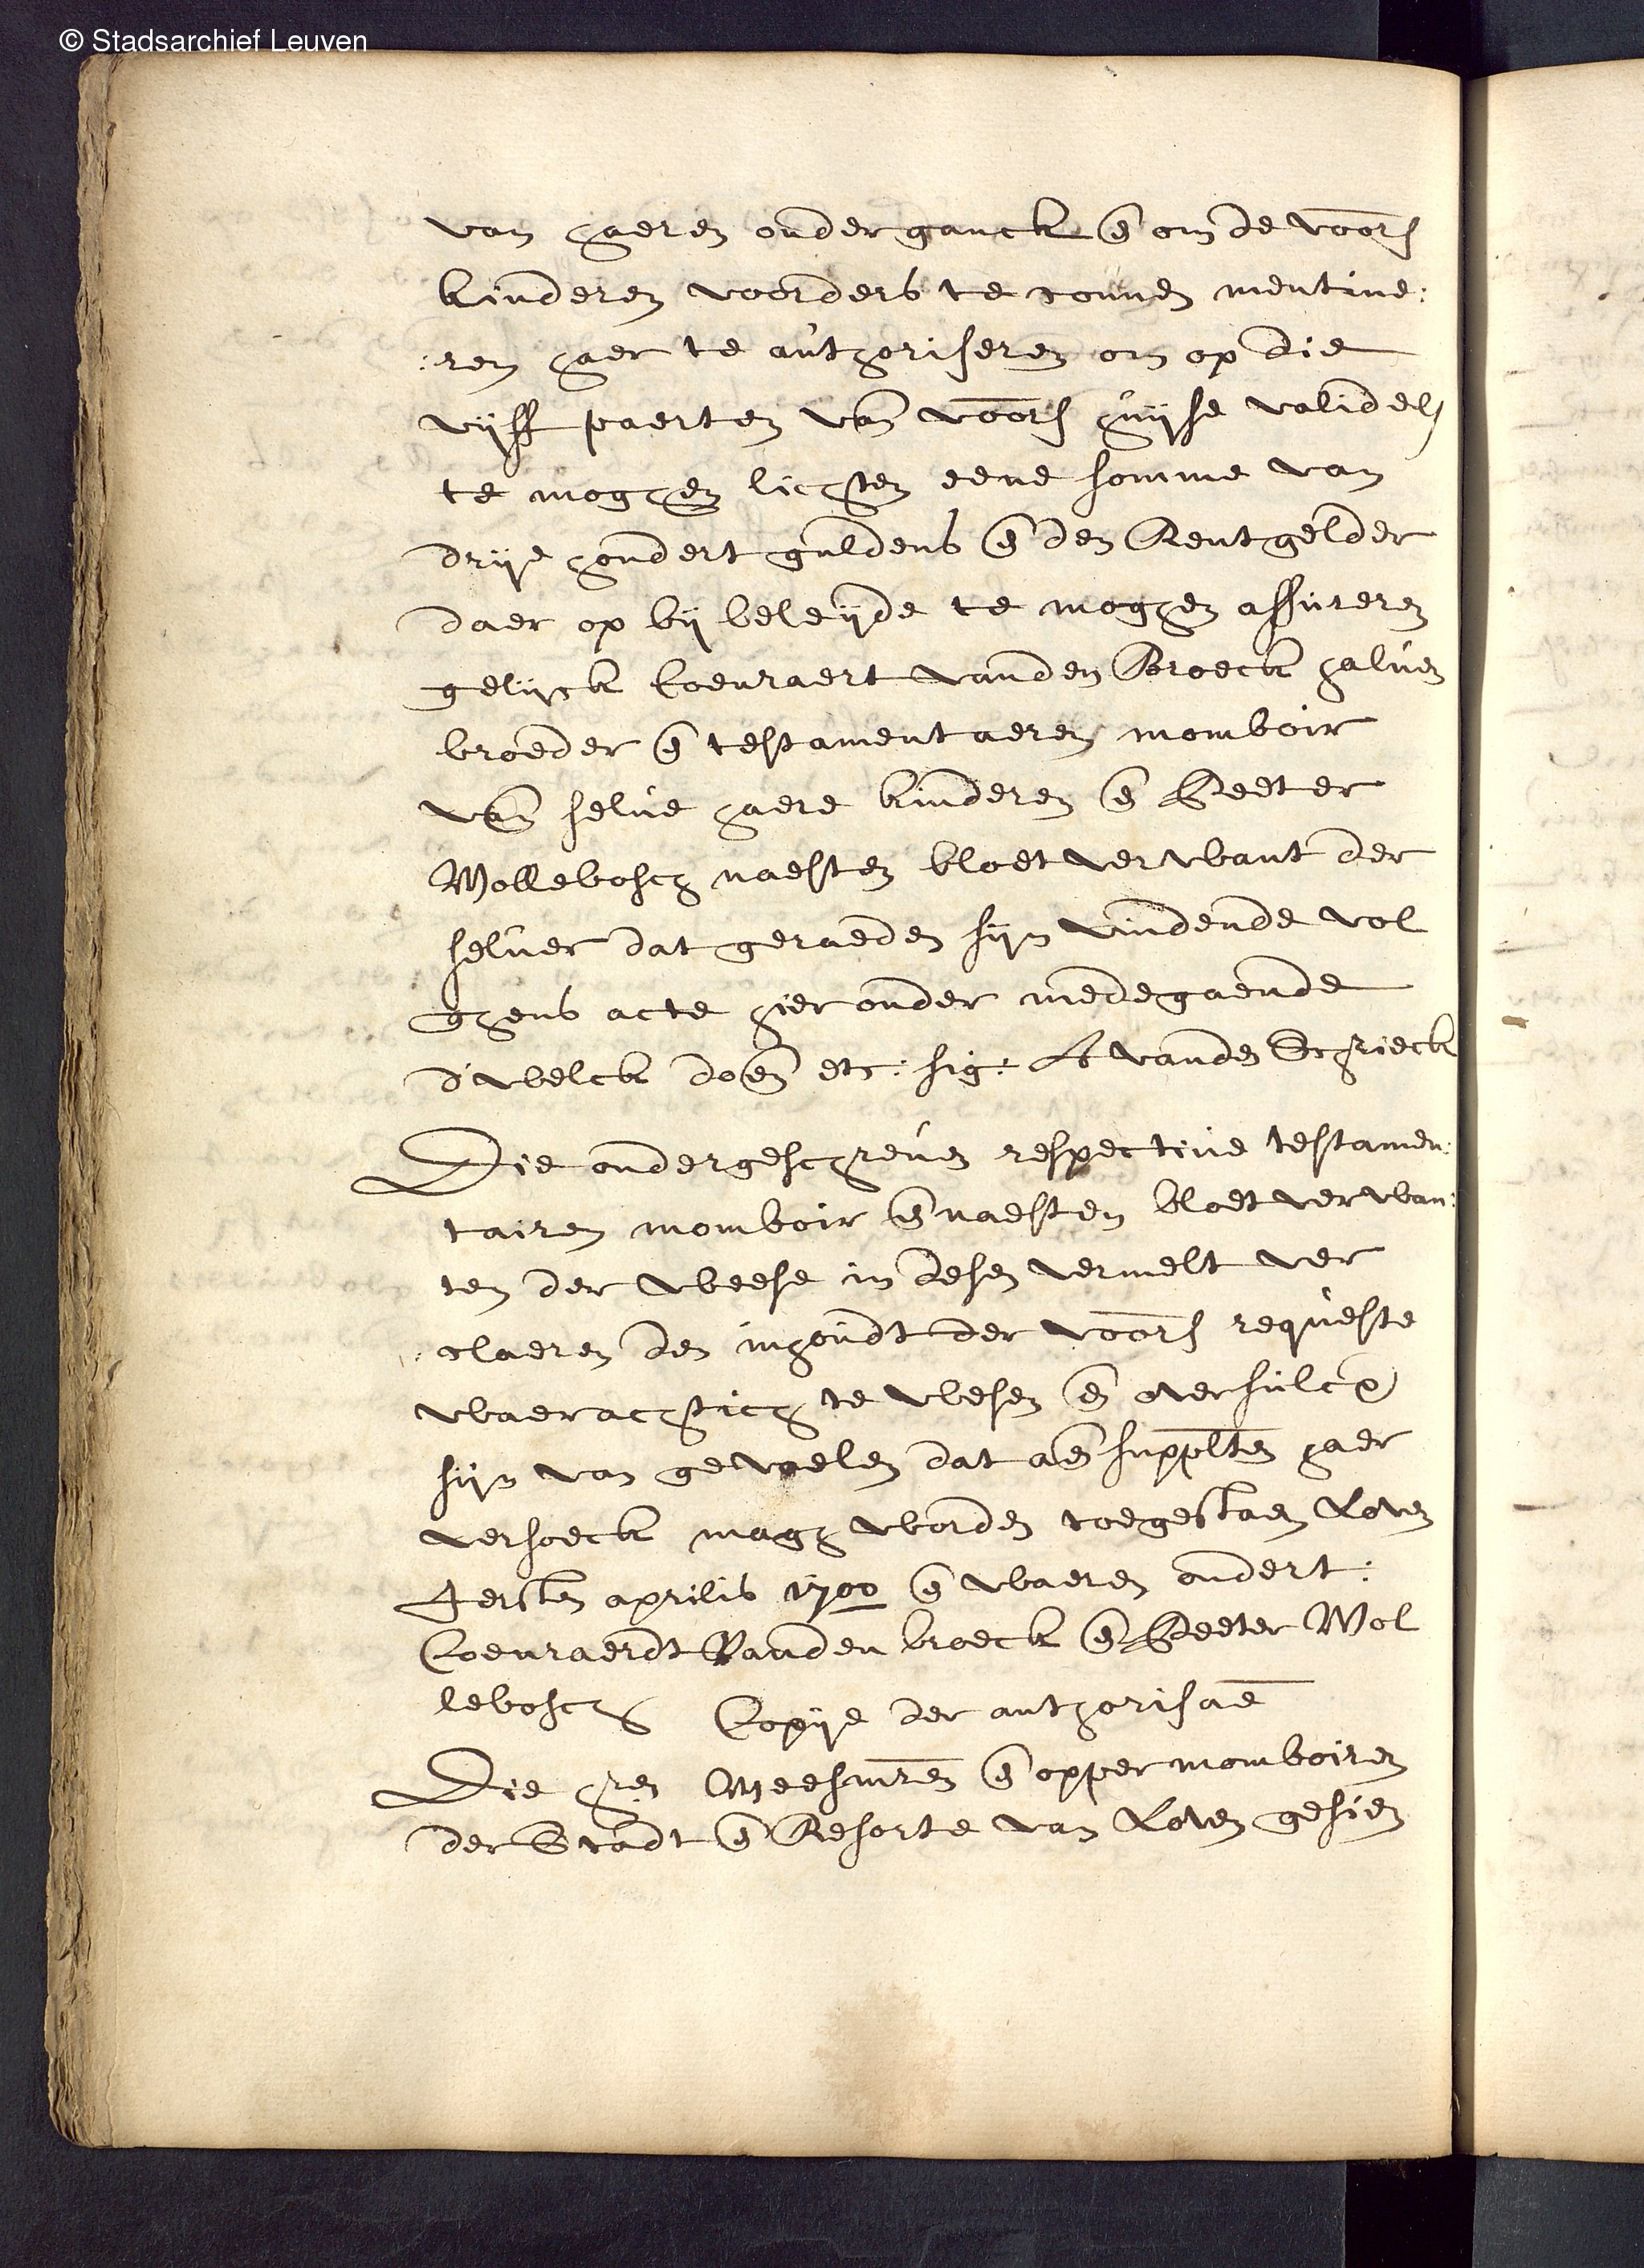 © Stadsarchief Leuven
van haeren onderganck en om de voors
kinderen voorders te connen mentine:
:ren haer te authoriseren om op die
vijff paerten van voors huijse validel
te moghen lichten eene somme van
drije hondert guldens en den Rentgelder
daer op bij beleijde te moghen assureren
gelijck Coenraert vanden Broeck halven
broeder en testamentaeren momboir
van selve haere kinderen en Peeter
Mollebosch naesten bloetverwant der
selver dat geraeden sijn vindende vol
ghens acte hier onder medegaende
d'welck doen etc: sig: vanden Schrieck
Die ondergeschreven respective testamen:
tairen momboir en naesten bloetverwan:
ten der weese in desen vermelt ver
:claeren den inhoudt der voors requeste
waerachtich te wesen en oversulcx
sijn van gevoelen dat aen supplten haer
versoeck magh worden toegestaen Loven
Iersten aprilis 1700 en waeren ondert:
Coenraerdt Vanden broeck en Peeter Mol
lebosch Copije der authorisaē
Die hren Weesmren en oppermomboiren
der Stadt en Resorte van Loven gesien